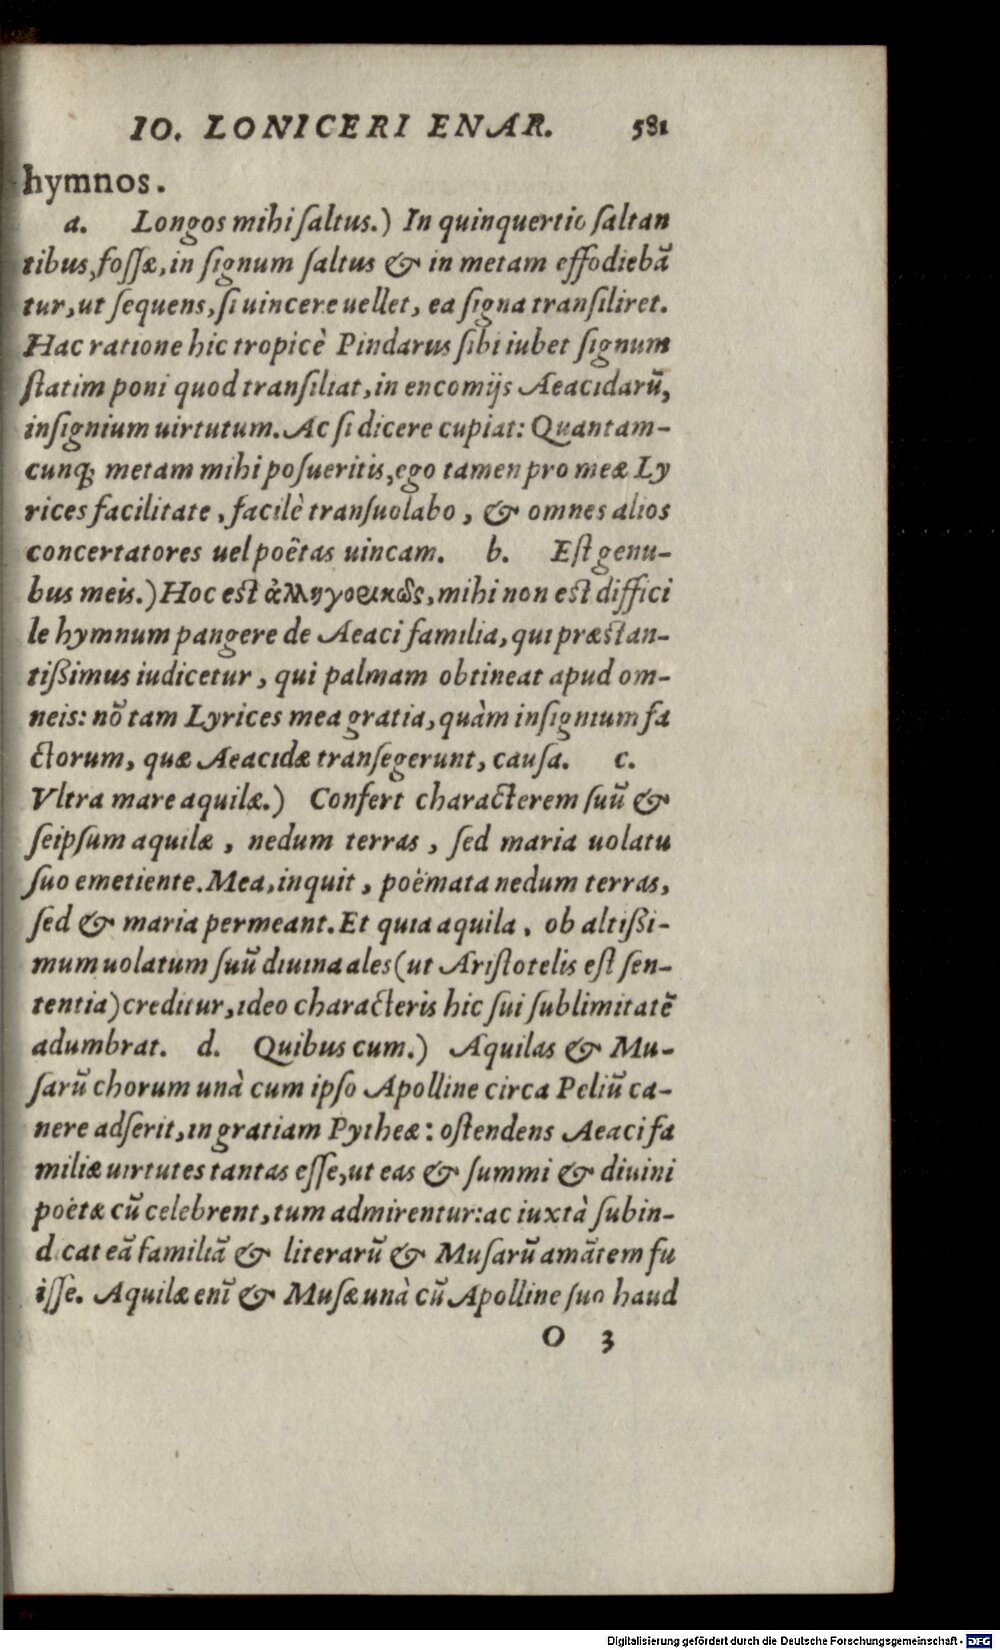 IO. LONICERI ENAR. 581
hymnos.
a. Longos mihi ſaltus.) In quinquertio ſaltan
tibus, foſſæ, in ſignum ſaltus & in metam effodiebã
tur, ut ſequens, ſi uincere uellet, ea ſigna tranſiliret.
Hac ratione hic tropicè Pindarus ſibi iubet ſignum
ſtatim poni quod tranſiliat, in encomijs Aeacidarũ,
inſignium uirtutum. Ac ſi dicere cupiat: Quantam-
cunq; metam mihi poſueritis, ego tamen pro meæ Ly
rices facilitate, facilè tranſuolabo, & omnes alios
concertatores uel poëtas uincam. b. Eſt genu-
bus meis.) Hoc eſt ἀλληγορικῶς, mihi non eſt diffici
le hymnum pangere de Aeaci familia, qui præſtan-
tißimus iudicetur, qui palmam obtineat apud om-
neis: nõ tam Lyrices mea gratia, quàm inſignium fa
ctorum, quæ Aeacidæ tranſegerunt, cauſa. c.
Vltra mare aquilæ.) Confert characterem ſuũ &
ſeipſum aquilæ, nedum terras, ſed maria uolatu
ſuo emetiente. Mea, inquit, poëmata nedum terras,
ſed & maria permeant. Et quia aquila, ob altißi-
mum uolatum ſuũ diuina ales (ut Ariſtotelis eſt ſen-
tentia) creditur, ideo characteris hic ſui ſublimitatẽ
adumbrat. d. Quibus cum.) Aquilas & Mu-
ſarũ chorum unà cum ipſo Apolline circa Peliũ ca-
nere adſerit, in gratiam Pytheæ: oſtendens Aeaci fa
miliæ uirtutes tantas eſſe, ut eas & ſummi & diuini
poëtæ cũ celebrent, tum admirentur: ac iuxtà ſubin-
dicat eã familiã & literarũ & Muſarũ amãtem fu
iſſe. Aquilæ enĩ & Muſæ unà cũ Apolline ſuo haud
O 3
Digitalisierung gefördert durch die Deutsche Forschungsgemeinschaft - DFG